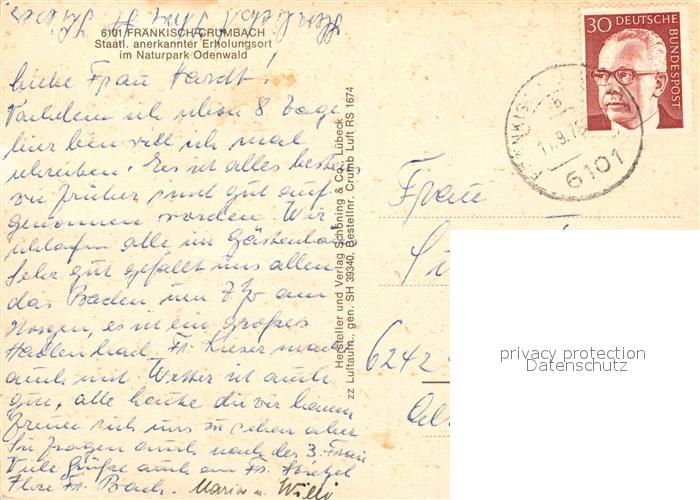 6101 FRÄNKISCH-CRUMBACH
Staatl. anerkannter Erholungsort
im Naturpark Odenwald
Liebe Frau Hardt!
Nachdem ich schon 8 Tage
hier bin will ich mal
schreiben. Es ist alles bestens
wie früher sind gut auf-
genommen worden. Wir
schlafen alle im Gästehaus
Sehr gut gefällt uns allen
das Baden um 7 am
Morgen, es ist ein großes
Hallenbad. Fr. macht
auch mit. Wetter ist auch
gut, alle Leute die wir kennen
freuen sich uns zu sehen aber
Sie fragen auch nach der 3. Frau
Viele Grüße auch an Fr.
Ihre Fr. Bach. Maria u. Willi
Hersteller und Verlag Schöning & Co., Lübeck
zz Luftaufn., gen. SH 39340, Bestellnr. Crumb Luft RS 1674
30 DEUTSCHE
BUNDESPOST
FRÄNKIS
6101
Frau
6242
privacy protection
Datenschutz